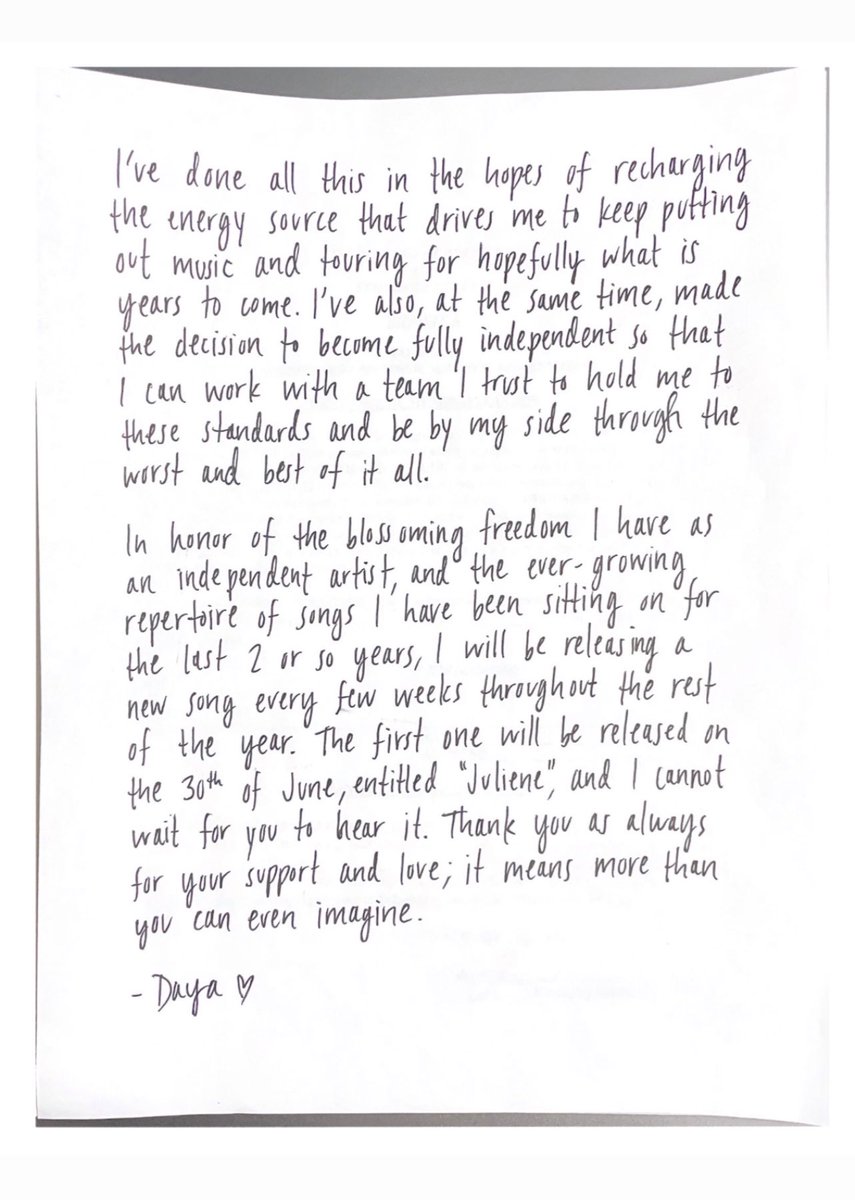 I've done all this in the hopes of recharging
the energy source that drives me to keep putting
out music and touring for hopefully what is
years to come. I've also, at the same time, made
the decision to become fully independent so that
I can work with a team I trust to hold me to
these standards and be by my side through the
worst and best of it all.
In honor of the blossoming freedom I have as
an independent artist, and the ever-growing
repertoire of songs I have been sitting on for
the last 2 or so years, I will be releasing a
new song every few weeks throughout the rest
of the year. The first one will be released on
the 30th of June, entitled "Juliene", and I cannot
wait for you to hear it. Thank you as always
for your support and love; it means more than
you can even imagine.
- Daya ♡